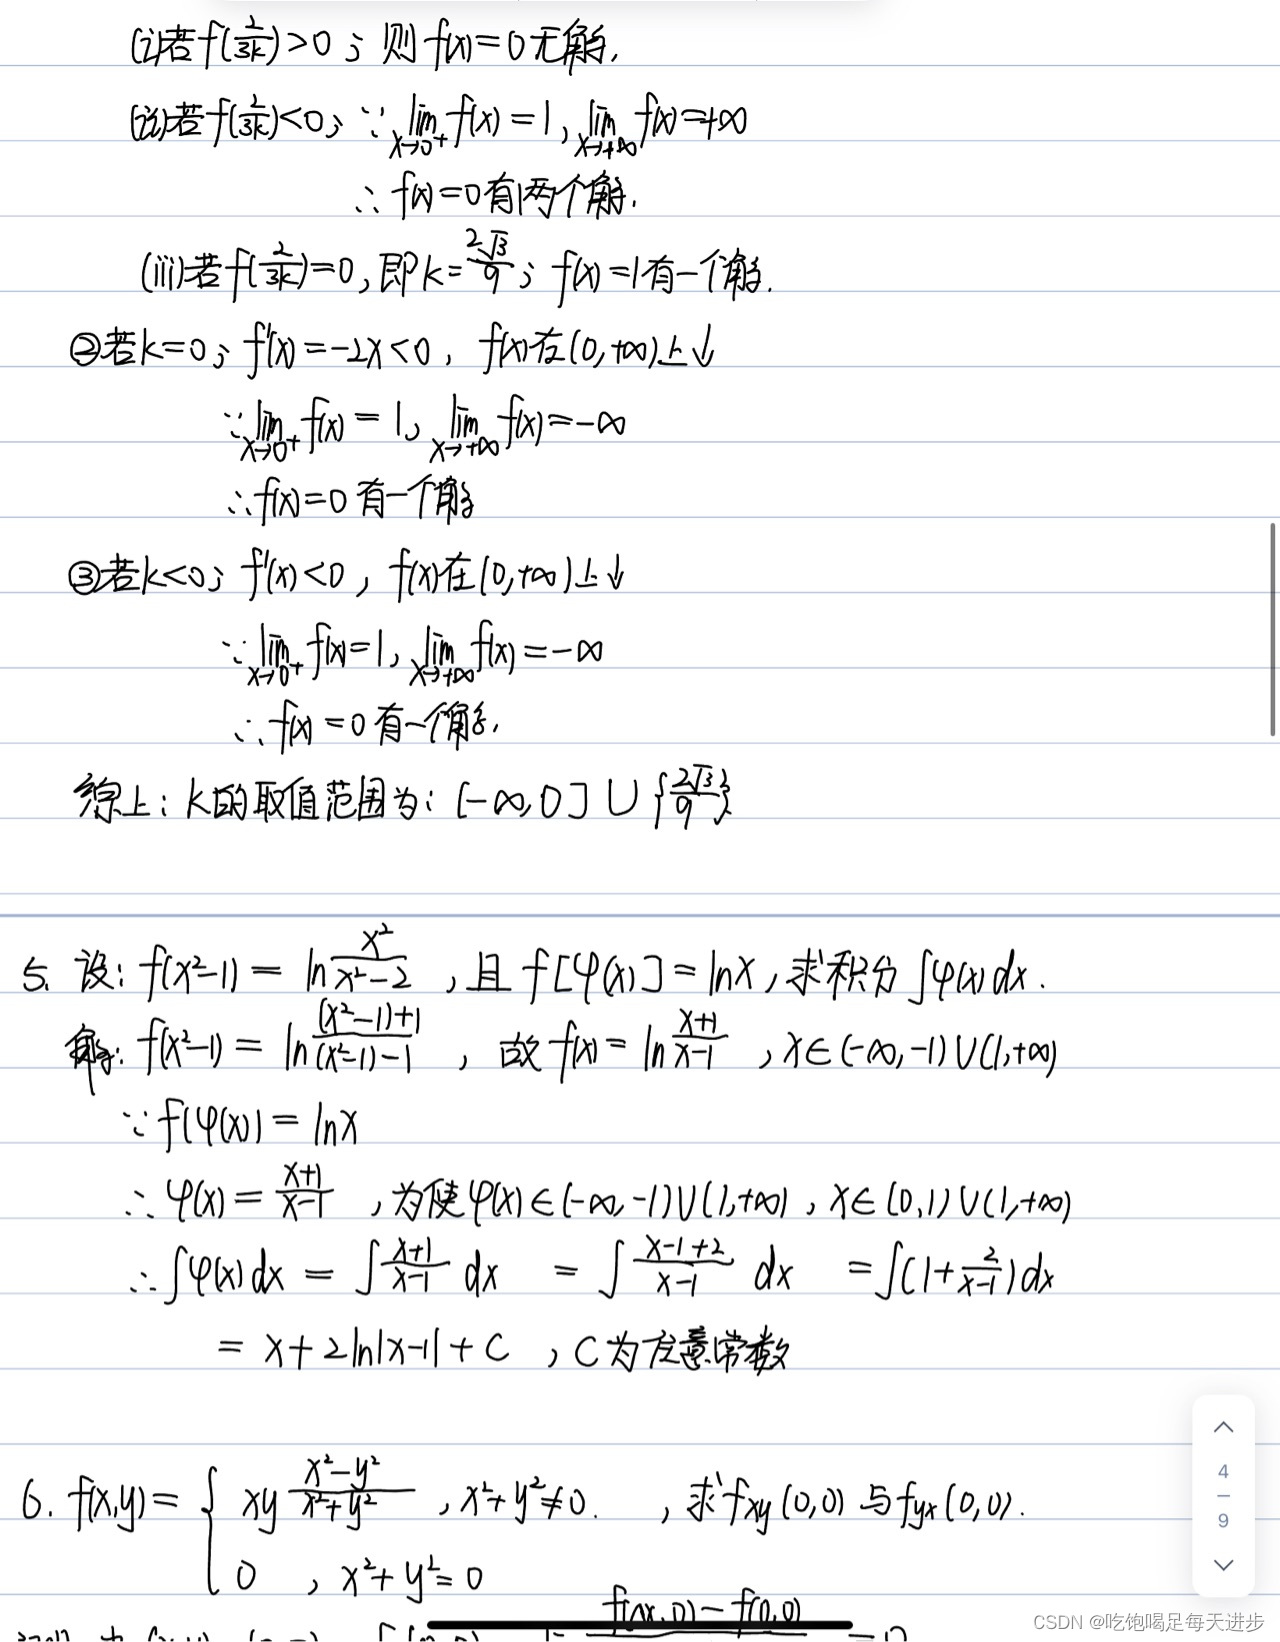 (i)若f(2/3k)>0；则f(x)=0无解,
(ii)若f(2/3k)<0；∵lim x→0⁺ f(x)=1, lim x→+∞ f(x)=+∞
∴f(x)=0有两个解.
(iii)若f(2/3k)=0,即k=2√3/9；f(x)=1有一个解.
②若k=0；f'(x)=-2x<0，f(x)在(0,+∞)上↓
∵lim x→0⁺ f(x)=1, lim x→+∞ f(x)=-∞
∴f(x)=0有一个解
③若k<0；f'(x)<0，f(x)在(0,+∞)上↓
∵lim x→0⁺ f(x)=1, lim x→+∞ f(x)=-∞
∴f(x)=0有一个解.
综上：k的取值范围为：(-∞,0]∪{2√3/9}
5. 设：f(x²-1)=ln x²/(x²-2)，且f[φ(x)]=lnx,求积分∫φ(x)dx.
解：f(x²-1)=ln ((x²-1)+1)/((x²-1)-1)，故f(x)=ln (x+1)/(x-1)，x∈(-∞,-1)∪(1,+∞)
∵f(φ(x))=lnx
∴φ(x)=(x+1)/(x-1)，为使φ(x)∈(-∞,-1)∪(1,+∞)，x∈(0,1)∪(1,+∞)
∴∫φ(x)dx=∫(x+1)/(x-1) dx =∫(x-1+2)/(x-1) dx =∫(1+2/(x-1))dx
=x+2ln|x-1|+C，C为任意常数
6. f(x,y)={ xy (x²-y²)/(x²+y²)，x²+y²≠0. ，求fxy(0,0)与fyx(0,0).
0，x²+y²=0
f(x,0)-f(0,0)
4
9
CSDN @吃饱喝足每天进步